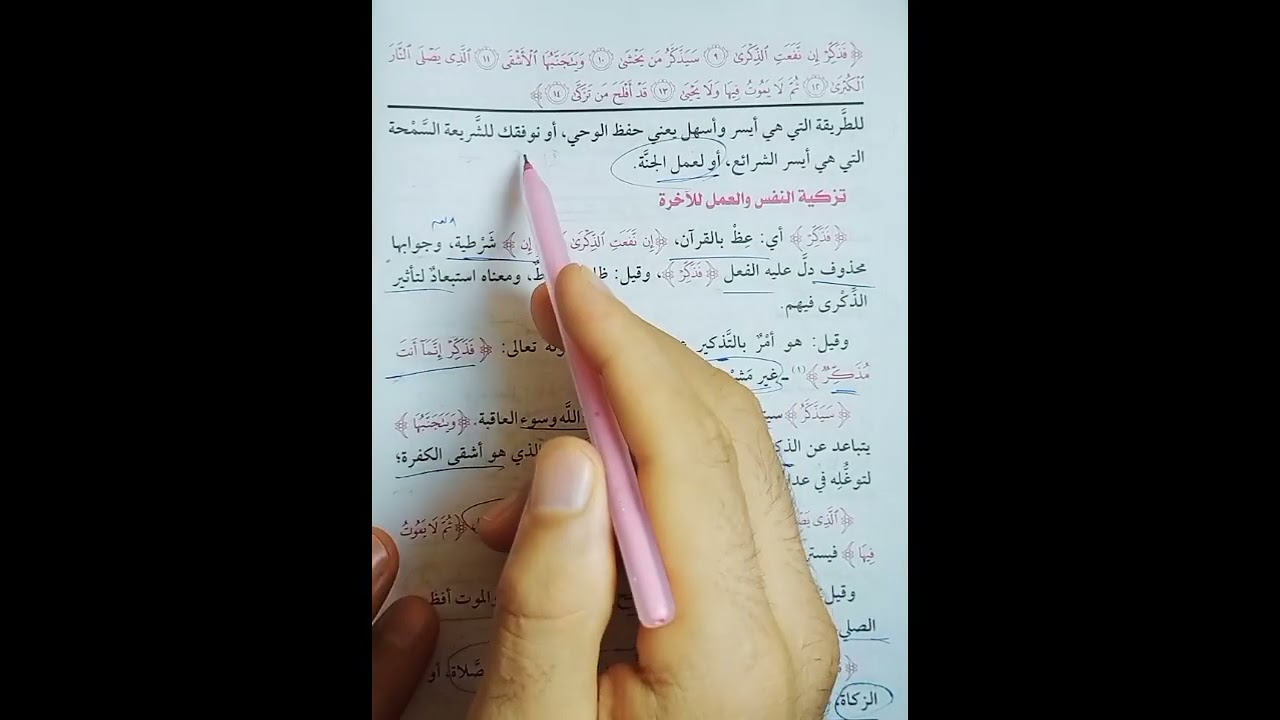 ﴿ فَذَكِّرْ إِن نَّفَعَتِ ٱلذِّكْرَىٰ ٩ سَيَذَّكَّرُ مَن يَخْشَىٰ ١٠ وَيَتَجَنَّبُهَا ٱلْأَشْقَى ١١ ٱلَّذِى يَصْلَى ٱلنَّارَ
ٱلْكُبْرَىٰ ١٢ ثُمَّ لَا يَمُوتُ فِيهَا وَلَا يَحْيَىٰ ١٣ قَدْ أَفْلَحَ مَن تَزَكَّىٰ ١٤ ﴾
للطَّريقة التي هي أيسر وأسهل يعني حفظ الوحي، أو نوفقك للشَّريعة السَّمْحة
التي هي أيسر الشرائع، أو لعمل الجنَّة.
تزكية النفس والعمل للآخرة
﴿ فَذَكِّرْ ﴾ أي: عِظْ بالقرآن، ﴿ إِن نَّفَعَتِ ٱلذِّكْرَىٰ إِن ﴾ شَرْطية، وجوابها
محذوف دلَّ عليه الفعل ﴿ فَذَكِّرْ ﴾، وقيل: ومعناه استبعادٌ لتأثير
الذِّكْرى فيهم.
وقيل: هو أمْرٌ بالتَّذكير تعالى: ﴿ فَذَكِّرْ إِنَّمَآ أَنتَ
مُذَكِّرٌ ﴾ (١) ـ غير
﴿ سَيَذَّكَّرُ ﴾ اللَّه وسوء العاقبة. ﴿ وَيَتَجَنَّبُهَا ﴾
يتباعد عن الذي هو أشقى الكفرة؛
لتوغُّلِه في
﴿ ٱلَّذِى ﴿ ثُمَّ لَا يَمُوتُ
فِيهَا ﴾
وقيل: والموت أفظ
الصلي
صَّلاة، أو
الزكاة،